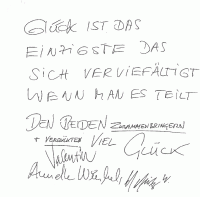 GLÜCK IST DAS
EINZIGSTE DAS
SICH VERVIEFÄLTIGT
WENN MAN ES TEILT
DEN BEIDEN ZUSAMMENBRINGERN
+ VIEL GLÜCK
Valentin